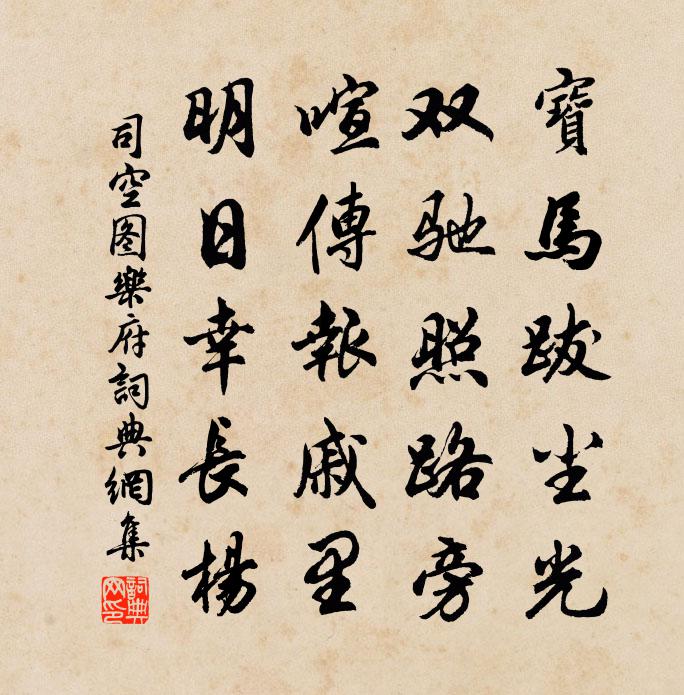 寶馬跋尘光
双驰照路旁
喧傳報戚里
明日幸長楊
司空图樂府詞典網集
詞典网印